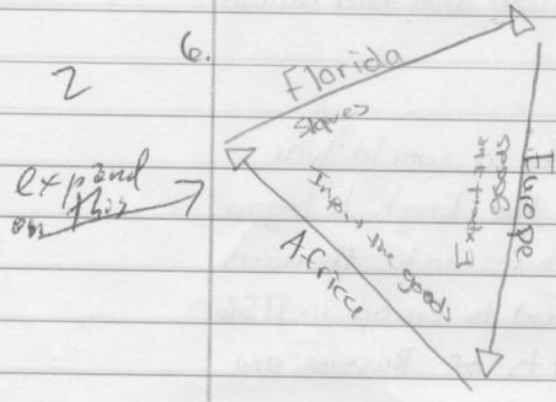 6.
2
expand
on this
Florida
slaves
Europe
Export the
goods
Import the goods
Africa